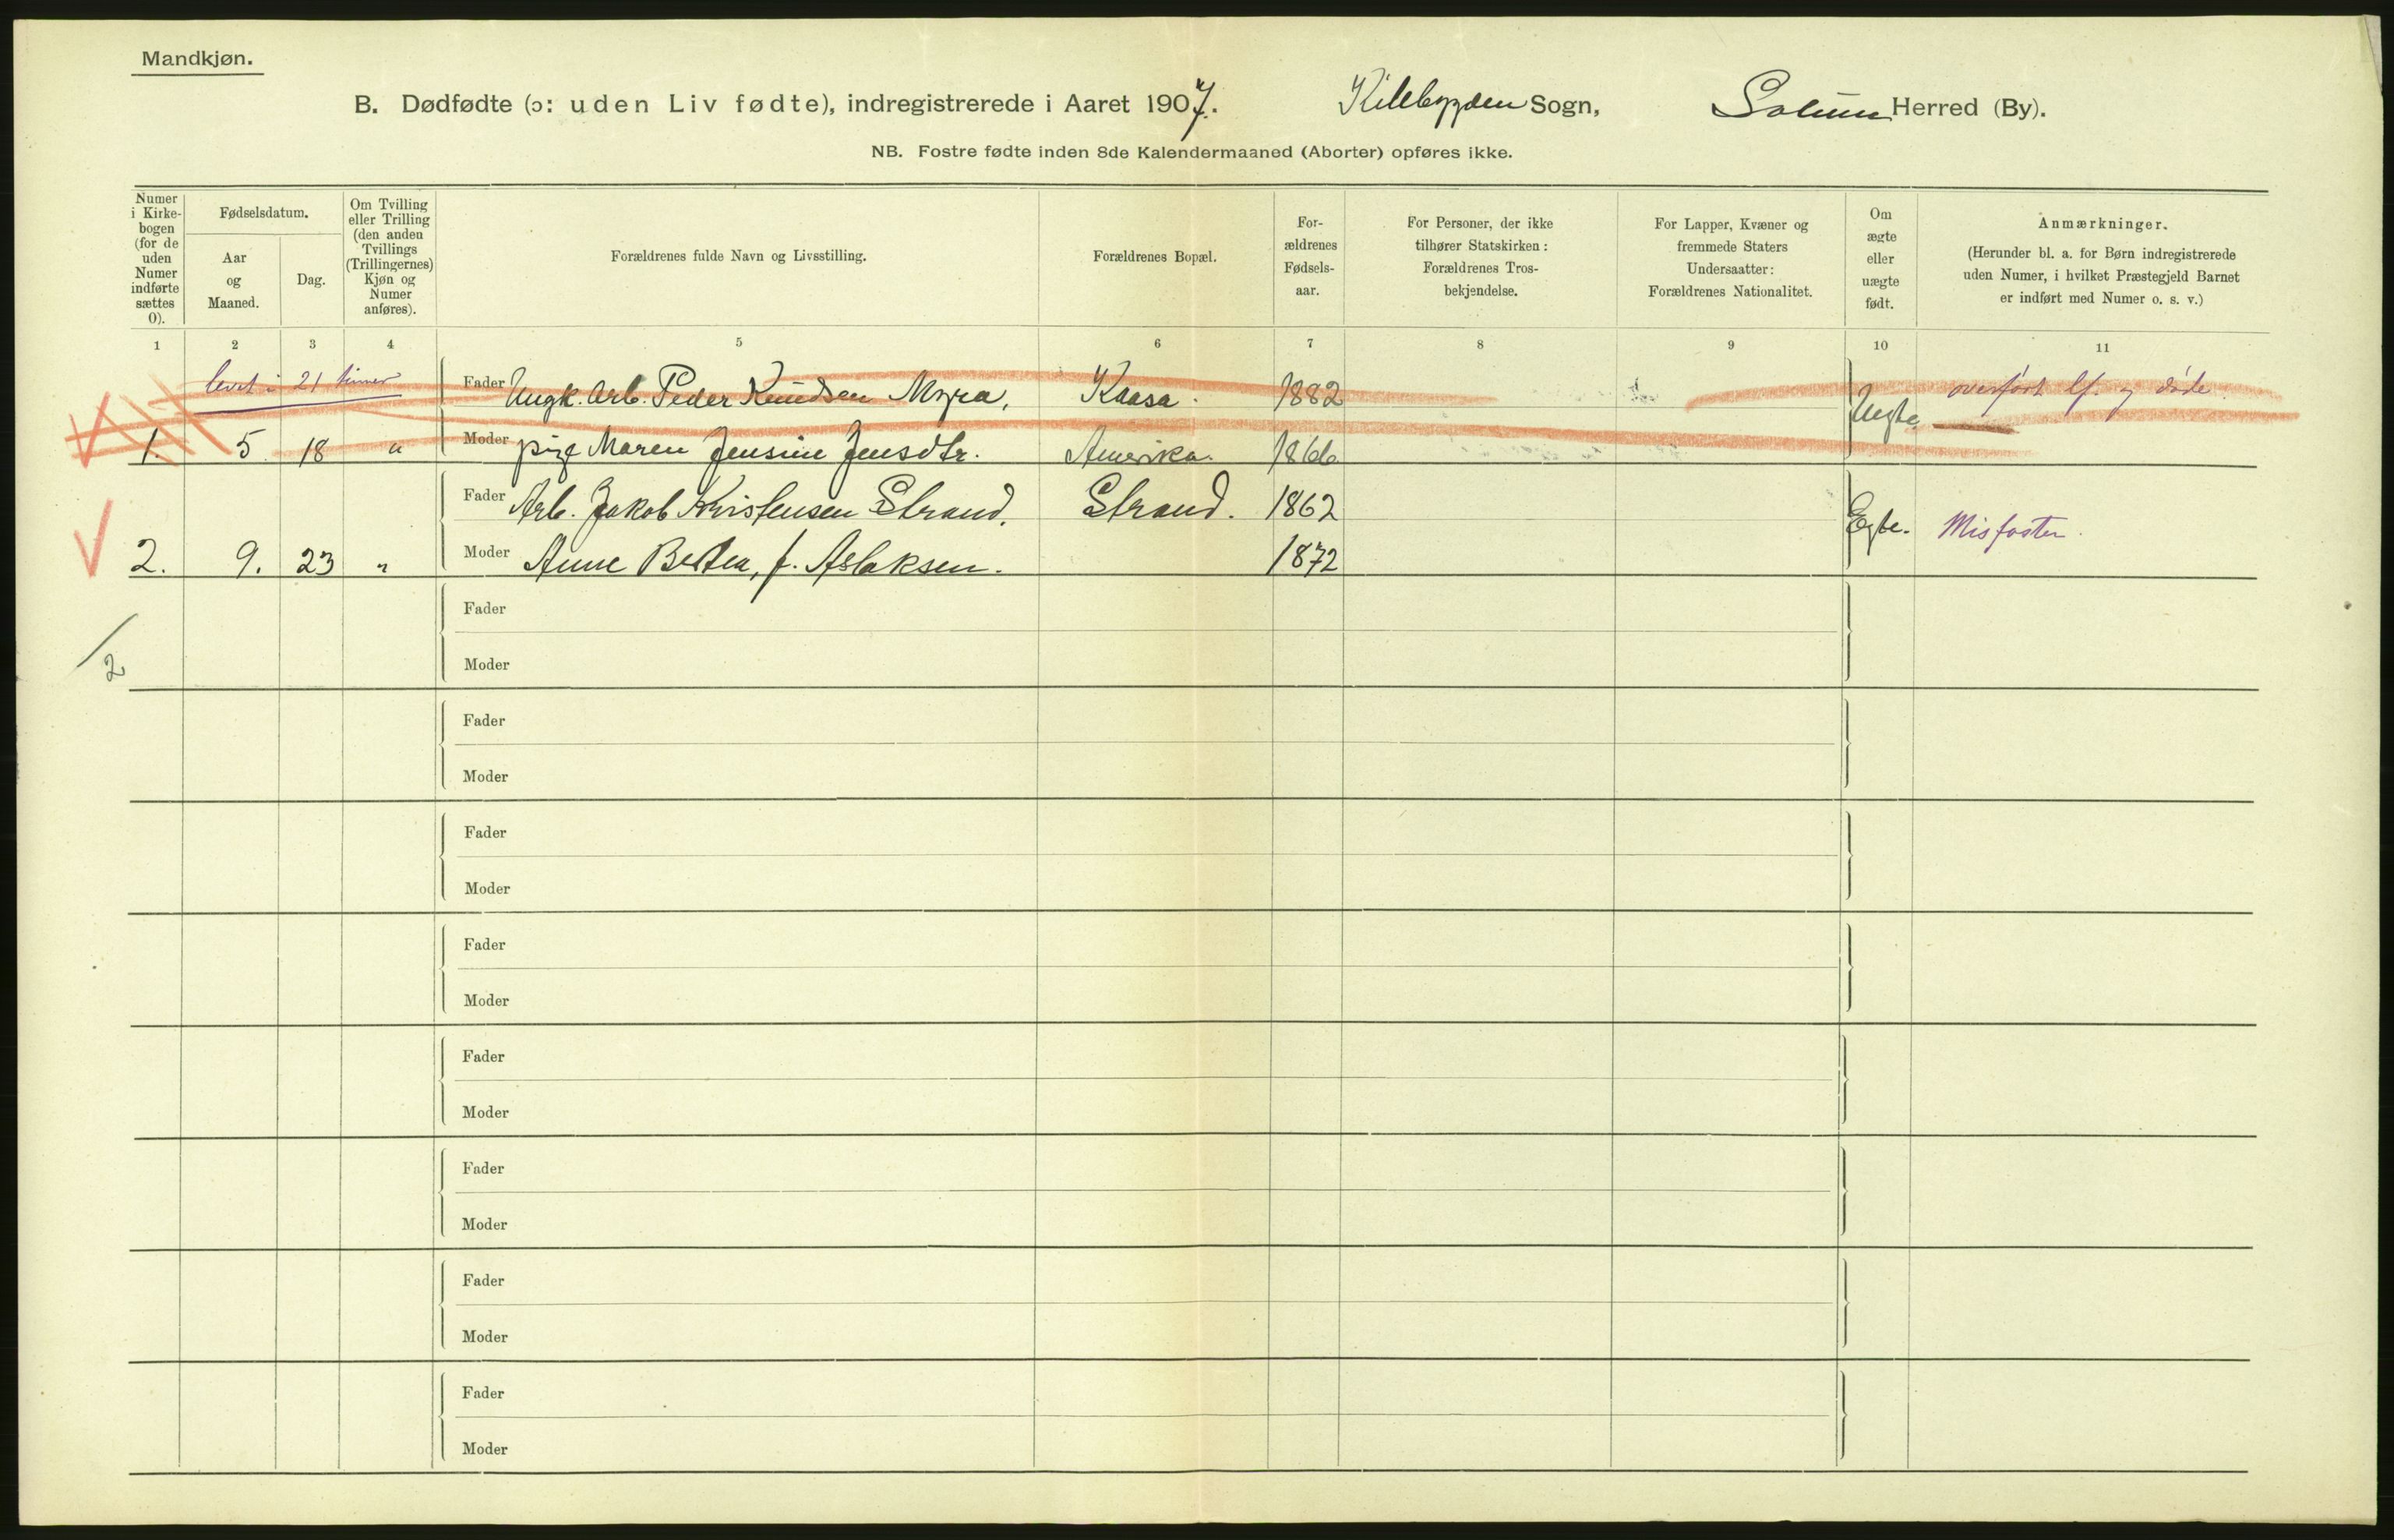 Mandkjøn.
B. Dødfødte (ɔ: uden Liv fødte), indregistrerede i Aaret 1907. Kilebygden Sogn, Solum Herred (By).
NB. Fostre fødte inden 8de Kalendermaaned (Aborter) opføres ikke.
Numer i Kirke-bogen (for de uden Numer indførte sættes 0).
Fødselsdatum.
Aar og Maaned.
Dag.
Om Tvilling eller Trilling (den anden Tvillings (Trillingernes) Kjøn og Numer anføres).
Forældrenes fulde Navn og Livsstilling.
Forældrenes Bopæl.
For-ældrenes Fødsels-aar.
For Personer, der ikke tilhører Statskirken: Forældrenes Tros-bekjendelse.
For Lapper, Kvæner og fremmede Staters Undersaatter: Forældrenes Nationalitet.
Om ægte eller uægte født.
Anmærkninger.
(Herunder bl. a. for Børn indregistrerede uden Numer, i hvilket Præstegjeld Barnet er indført med Numer o. s. v.)
1 2 3 4 5 6 7 8 9 10 11
levet i 21 timer
Fader Ungk. Arb. Peder Knudsen Myra, Kaasa. 1882 Uegte overført lf. og døde.
1. 5. 18 " Moder pige Maren Jensine Jensdtr. Amerika. 1866
Fader Arb. Jakob Kristensen Strand, Strand. 1862 Egte. Misfoster.
2. 9. 23 " Moder Anne Bertea, f. Aslaksen. 1872
Fader
/2 Moder
Fader
Moder
Fader
Moder
Fader
Moder
Fader
Moder
Fader
Moder
Fader
Moder
Fader
Moder